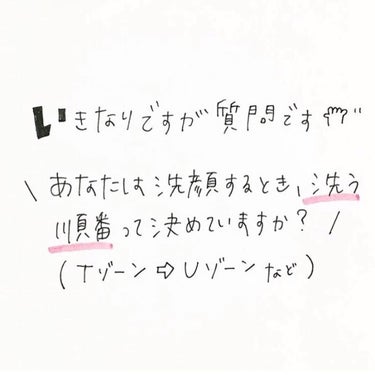 いきなりですが質問です
\ あなたは洗顔するとき、洗う
順番って決めていますか? /
(Tゾーン⇨Uゾーンなど)